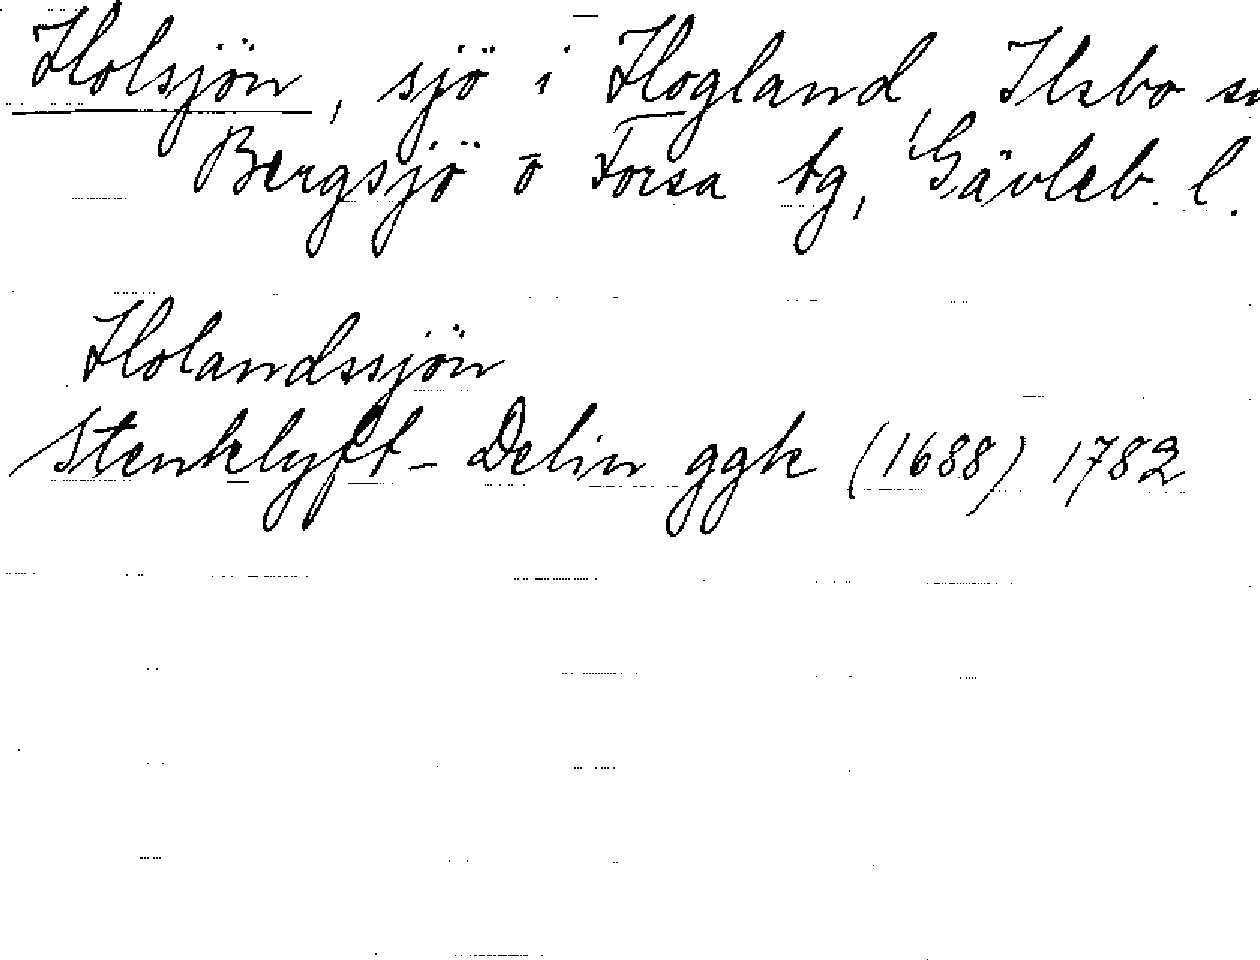 Holsjön, sjö i Hogland, Ilsbo sn
Bergsjö o Forsa tg, Gävleb. l.
Holandssjön
Stenklyft-Delin ggk (1688) 1782